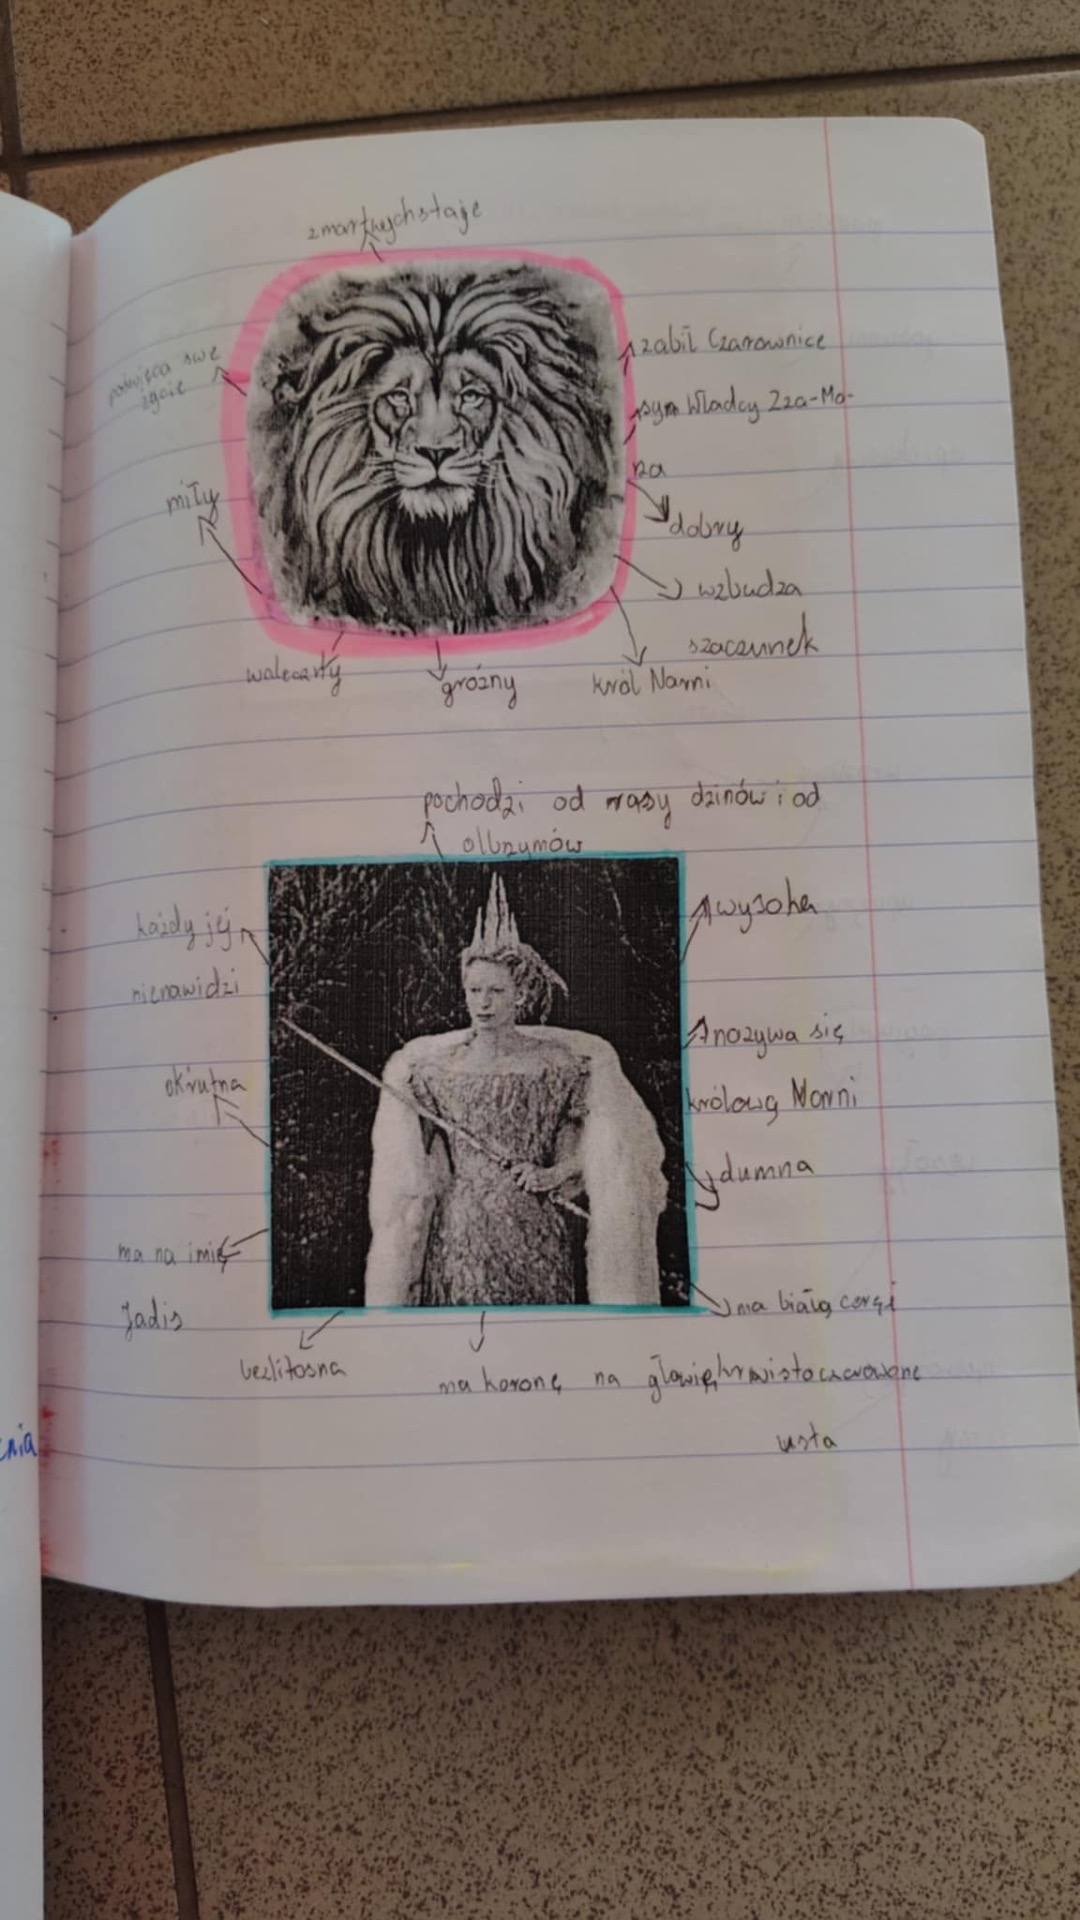 zmartwychstaje
poświęca swe
życie
miły
waleczny
groźny
król Narni
zabił Czarownice
syn Władcy Zza-Mo-
rza
dobry
wzbudza
szacunek
pochodzi od rasy dzinów i od
olbrzymów
każdy jej
nienawidzi
okrutna
ma na imię
Jadis
bezlitosna
ma koronę na głowię
wysoka
nazywa się
królową Narni
dumna
ma białą cerę i
krwistoczerwone
usta